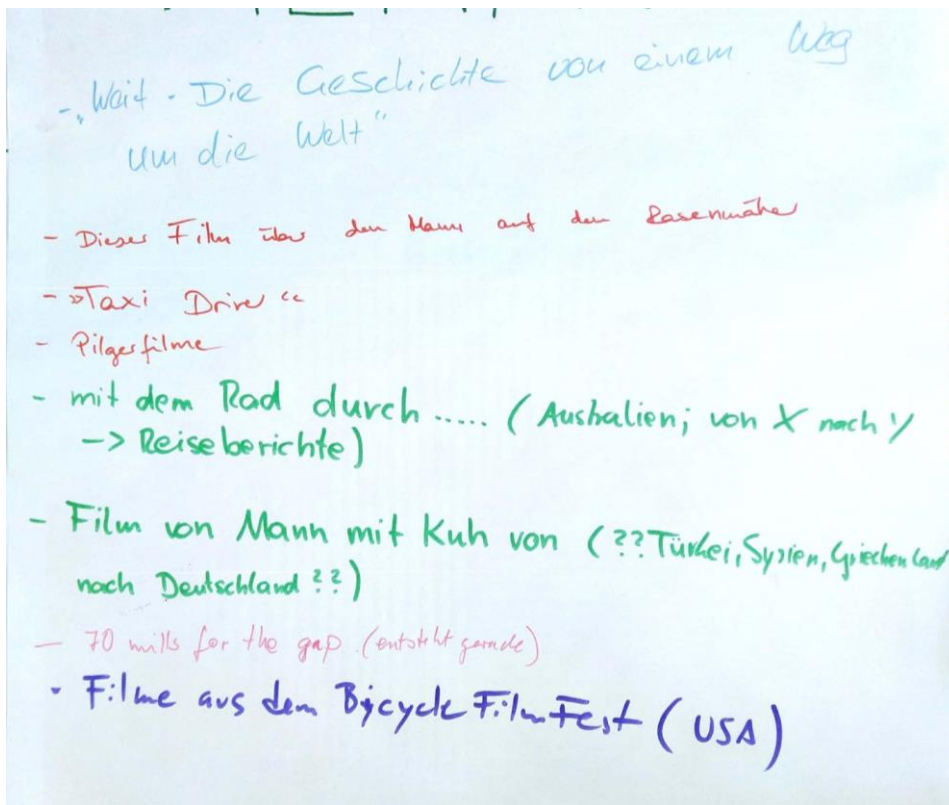 - „Weit - Die Geschichte von einem Weg
um die Welt"
- Dieser Film über den Mann auf dem Rasenmäher
- »Taxi Driver «
- Pilgerfilme
- mit dem Rad durch ..... (Australien; von X nach Y
-> Reiseberichte)
- Film von Mann mit Kuh von (??Türkei, Syrien, Griechenland
nach Deutschland??)
- 70 mills for the gap (entsteht gerade)
- Filme aus dem Bicycle Film Fest (USA)